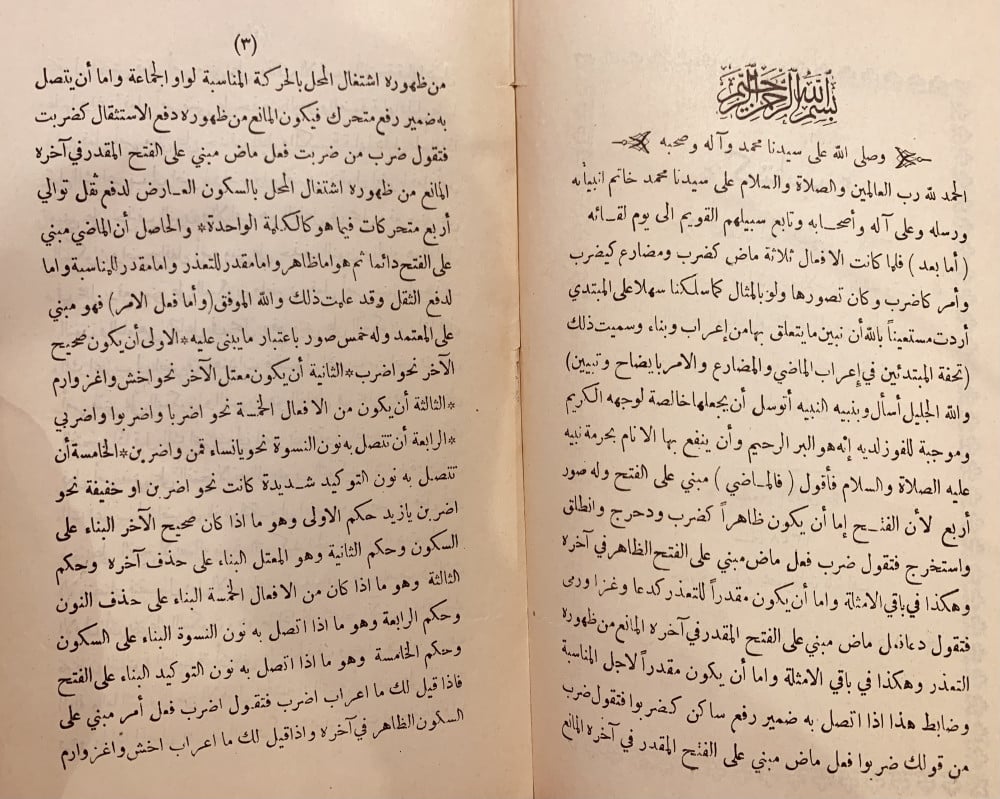 بسم الله الرحمن الرحيم
وصلى الله على سيدنا محمد وآله وصحبه
الحمد لله رب العالمين والصلاة والسلام على سيدنا محمد خاتم انبيائه
ورسله وعلى آله وأصحابه وتابع سبيلهم القويم الى يوم لقائه
(أما بعد) فلما كانت الافعال ثلاثة ماض كضرب ومضارع كيضرب
وأمر كاضرب وكان تصورها ولو بالمثال كما سلكنا سهلا على المبتدي
أردت مستعيناً بالله أن نبين ما يتعلق بها من إعراب وبناء وسميت ذلك
(تحفة المبتدئين في إعراب الماضي والمضارع والامر بايضاح وتبيين)
والله الجليل أسأل وبنبيه النبيه أتوسل أن يجعلها خالصة لوجهه الكريم
وموجبة للفوز لديه إنه هو البر الرحيم وأن ينفع بها الانام بحرمة نبيه
عليه الصلاة والسلام فأقول (فالماضي) مبني على الفتح وله صور
أربع لأن الفتح إما أن يكون ظاهراً كضرب ودحرج وانطلق
واستخرج فتقول ضرب فعل ماض مبني على الفتح الظاهر في آخره
وهكذا في باقي الامثلة واما أن يكون مقدراً للتعذر كدعا وغزا ورمى
فتقول دعا فعل ماض مبني على الفتح المقدر في آخره المانع من ظهوره
التعذر وهكذا في باقي الامثلة واما أن يكون مقدراً لاجل المناسبة
وضابط هذا اذا اتصل به ضمير رفع ساكن كضربوا فتقول ضرب
من قولك ضربوا فعل ماض مبني على الفتح المقدر في آخره المانع
(٣)
من ظهوره اشتغال المحل بالحركة المناسبة لواو الجماعة واما أن يتصل
به ضمير رفع متحرك فيكون المانع من ظهوره دفع الاستثقال كضربت
فتقول ضرب من ضربت فعل ماض مبني على الفتح المقدر في آخره
المانع من ظهوره اشتغال المحل بالسكون العارض لدفع ثقل توالي
أربع متحركات فيما هو كالكلمة الواحدة* والحاصل أن الماضي مبني
على الفتح دائما ثم هو اما ظاهر واما مقدر للتعذر واما مقدر للمناسبة واما
لدفع الثقل وقد علمت ذلك والله الموفق (وأما فعل الامر) فهو مبني
على المعتمد وله خمس صور باعتبار ما يبنى عليه* الاولى أن يكون صحيح
الآخر نحو اضرب* الثانية أن يكون معتل الآخر نحو اخش واغز وارم
*الثالثة أن يكون من الافعال الخمسة نحو اضربا واضربوا واضربي
*الرابعة أن تتصل به نون النسوة نحو يا نساء قمن واضربن* الخامسة أن
تتصل به نون التوكيد شديدة كانت نحو اضربن او خفيفة نحو
اضربن يا زيد حكم الاولى وهو ما اذا كان صحيح الآخر البناء على
السكون وحكم الثانية وهو المعتل البناء على حذف آخره وحكم
الثالثة وهو ما اذا كان من الافعال الخمسة البناء على حذف النون
وحكم الرابعة وهو ما اذا اتصل به نون النسوة البناء على السكون
وحكم الخامسة وهو ما اذا اتصل به نون التوكيد البناء على الفتح
فاذا قيل لك ما اعراب اضرب فتقول اضرب فعل أمر مبني على
السكون الظاهر في آخره واذا قيل لك ما اعراب اخش واغز وارم